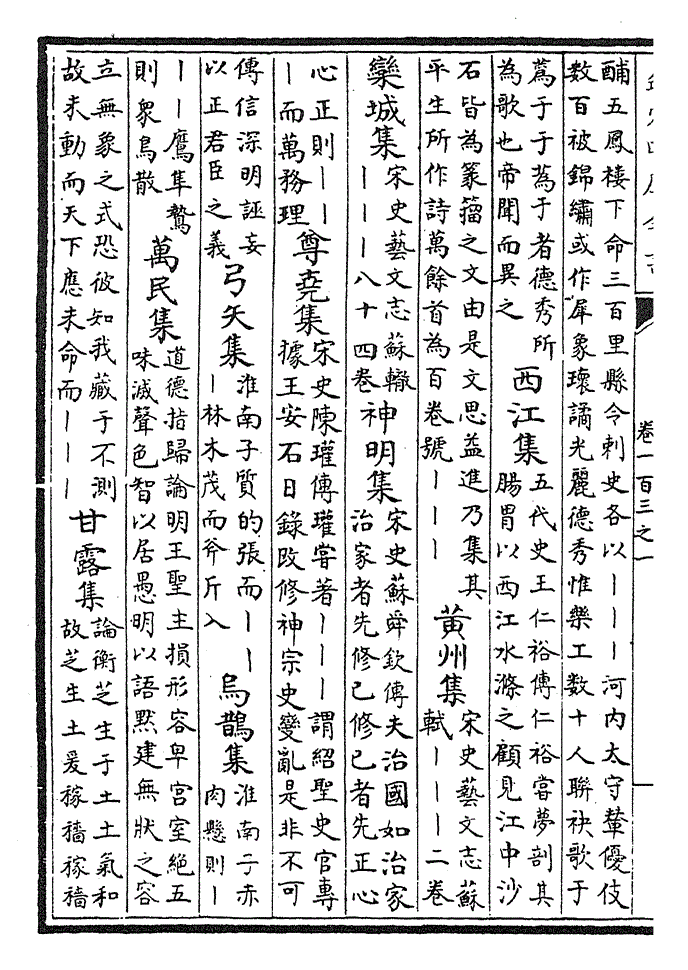 卷一百三之一
酺五鳳樓下命三百里縣令刺史各以丨丨丨河内太守輦優伎
数百被錦繡或作犀象瓌譎光麗德秀惟樂工数十人聯袂歌于
蔿于于蔿于者德秀所
為歌也帝聞而異之
西江集
五代史王仁裕傳仁裕嘗夢剖其
腸胃以西江水滌之顧見江中沙
石皆為篆籀之文由是文思益進乃集其
平生所作詩萬餘首為百卷號丨丨丨
黄州集
宋史藝文志蘇
軾丨丨丨二卷
欒城集
宋史藝文志蘇轍
丨丨丨八十四卷
神明集
宋史蘇舜欽傳夫治國如治家
治家者先修已修已者先正心
心正則丨丨
丨而萬務理
尊堯集
宋史陳瓘傳瓘嘗著丨丨丨謂紹聖史官專
據王安石日錄改修神宗史變亂是非不可
傳信深明誣妄
以正君臣之義
弓矢集
淮南子質的張而丨丨
丨林木茂而斧斤入
烏鵲集
淮南子赤
肉懸則丨
丨丨鷹隼鷙
則衆鳥散
萬民集
道德指歸論明王聖主損形容卑宫室絶五
味滅聲色智以居愚明以語默建無狀之容
立無象之式恐彼知我藏于不測
故未動而天下應未命而丨丨丨
甘露集
論衡芝生于土土氣和
故芝生土爰稼穡稼穡